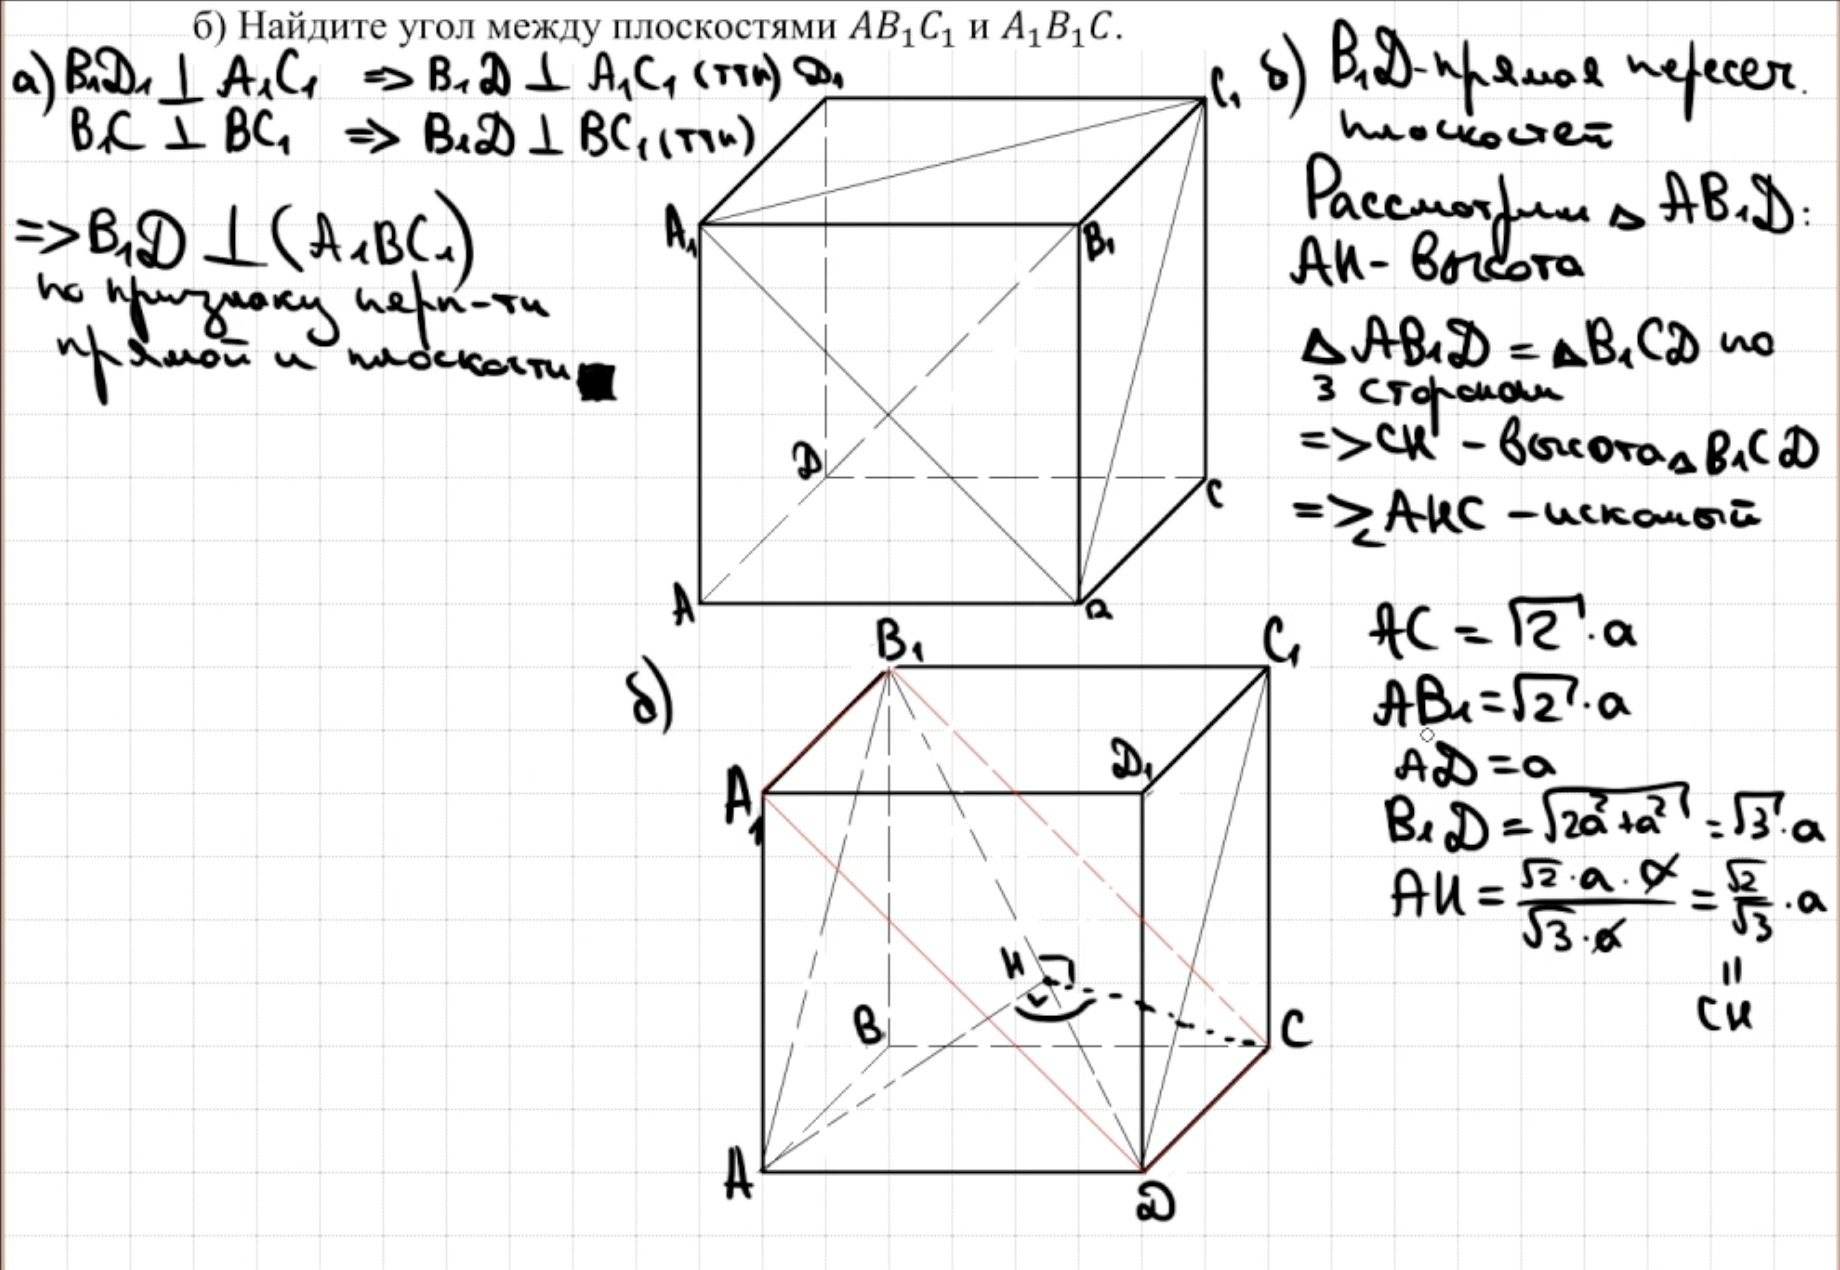 б) Найдите угол между плоскостями AB₁C₁ и A₁B₁C.
а) B₁D₁ ⊥ A₁C₁ => B₁D ⊥ A₁C₁ (ттп)
B₁C ⊥ BC₁ => B₁D ⊥ BC₁ (ттп)
=> B₁D ⊥ (A₁BC₁)
по признаку перп-ти
прямой и плоскости
D₁
C₁
A₁
B₁
D
C
A
B
б) B₁D - прямая пересеч.
плоскостей
Рассмотрим Δ AB₁D:
AH - высота
Δ AB₁D = Δ B₁CD по
3 сторонам
=> CH - высота Δ B₁CD
=> ∠AHC - искомый
AC = √2 · a
AB₁ = √2 · a
AD = a
B₁D = √(2a² + a²) = √3 · a
AH = (√2 · a · a)/(√3 · a) = √2/√3 · a
=
CH
б)
B₁
C₁
A₁
D₁
H
B
C
A
D